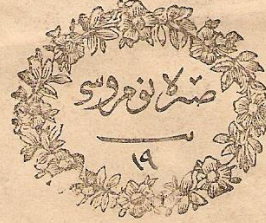 صره نومروسی
١٩